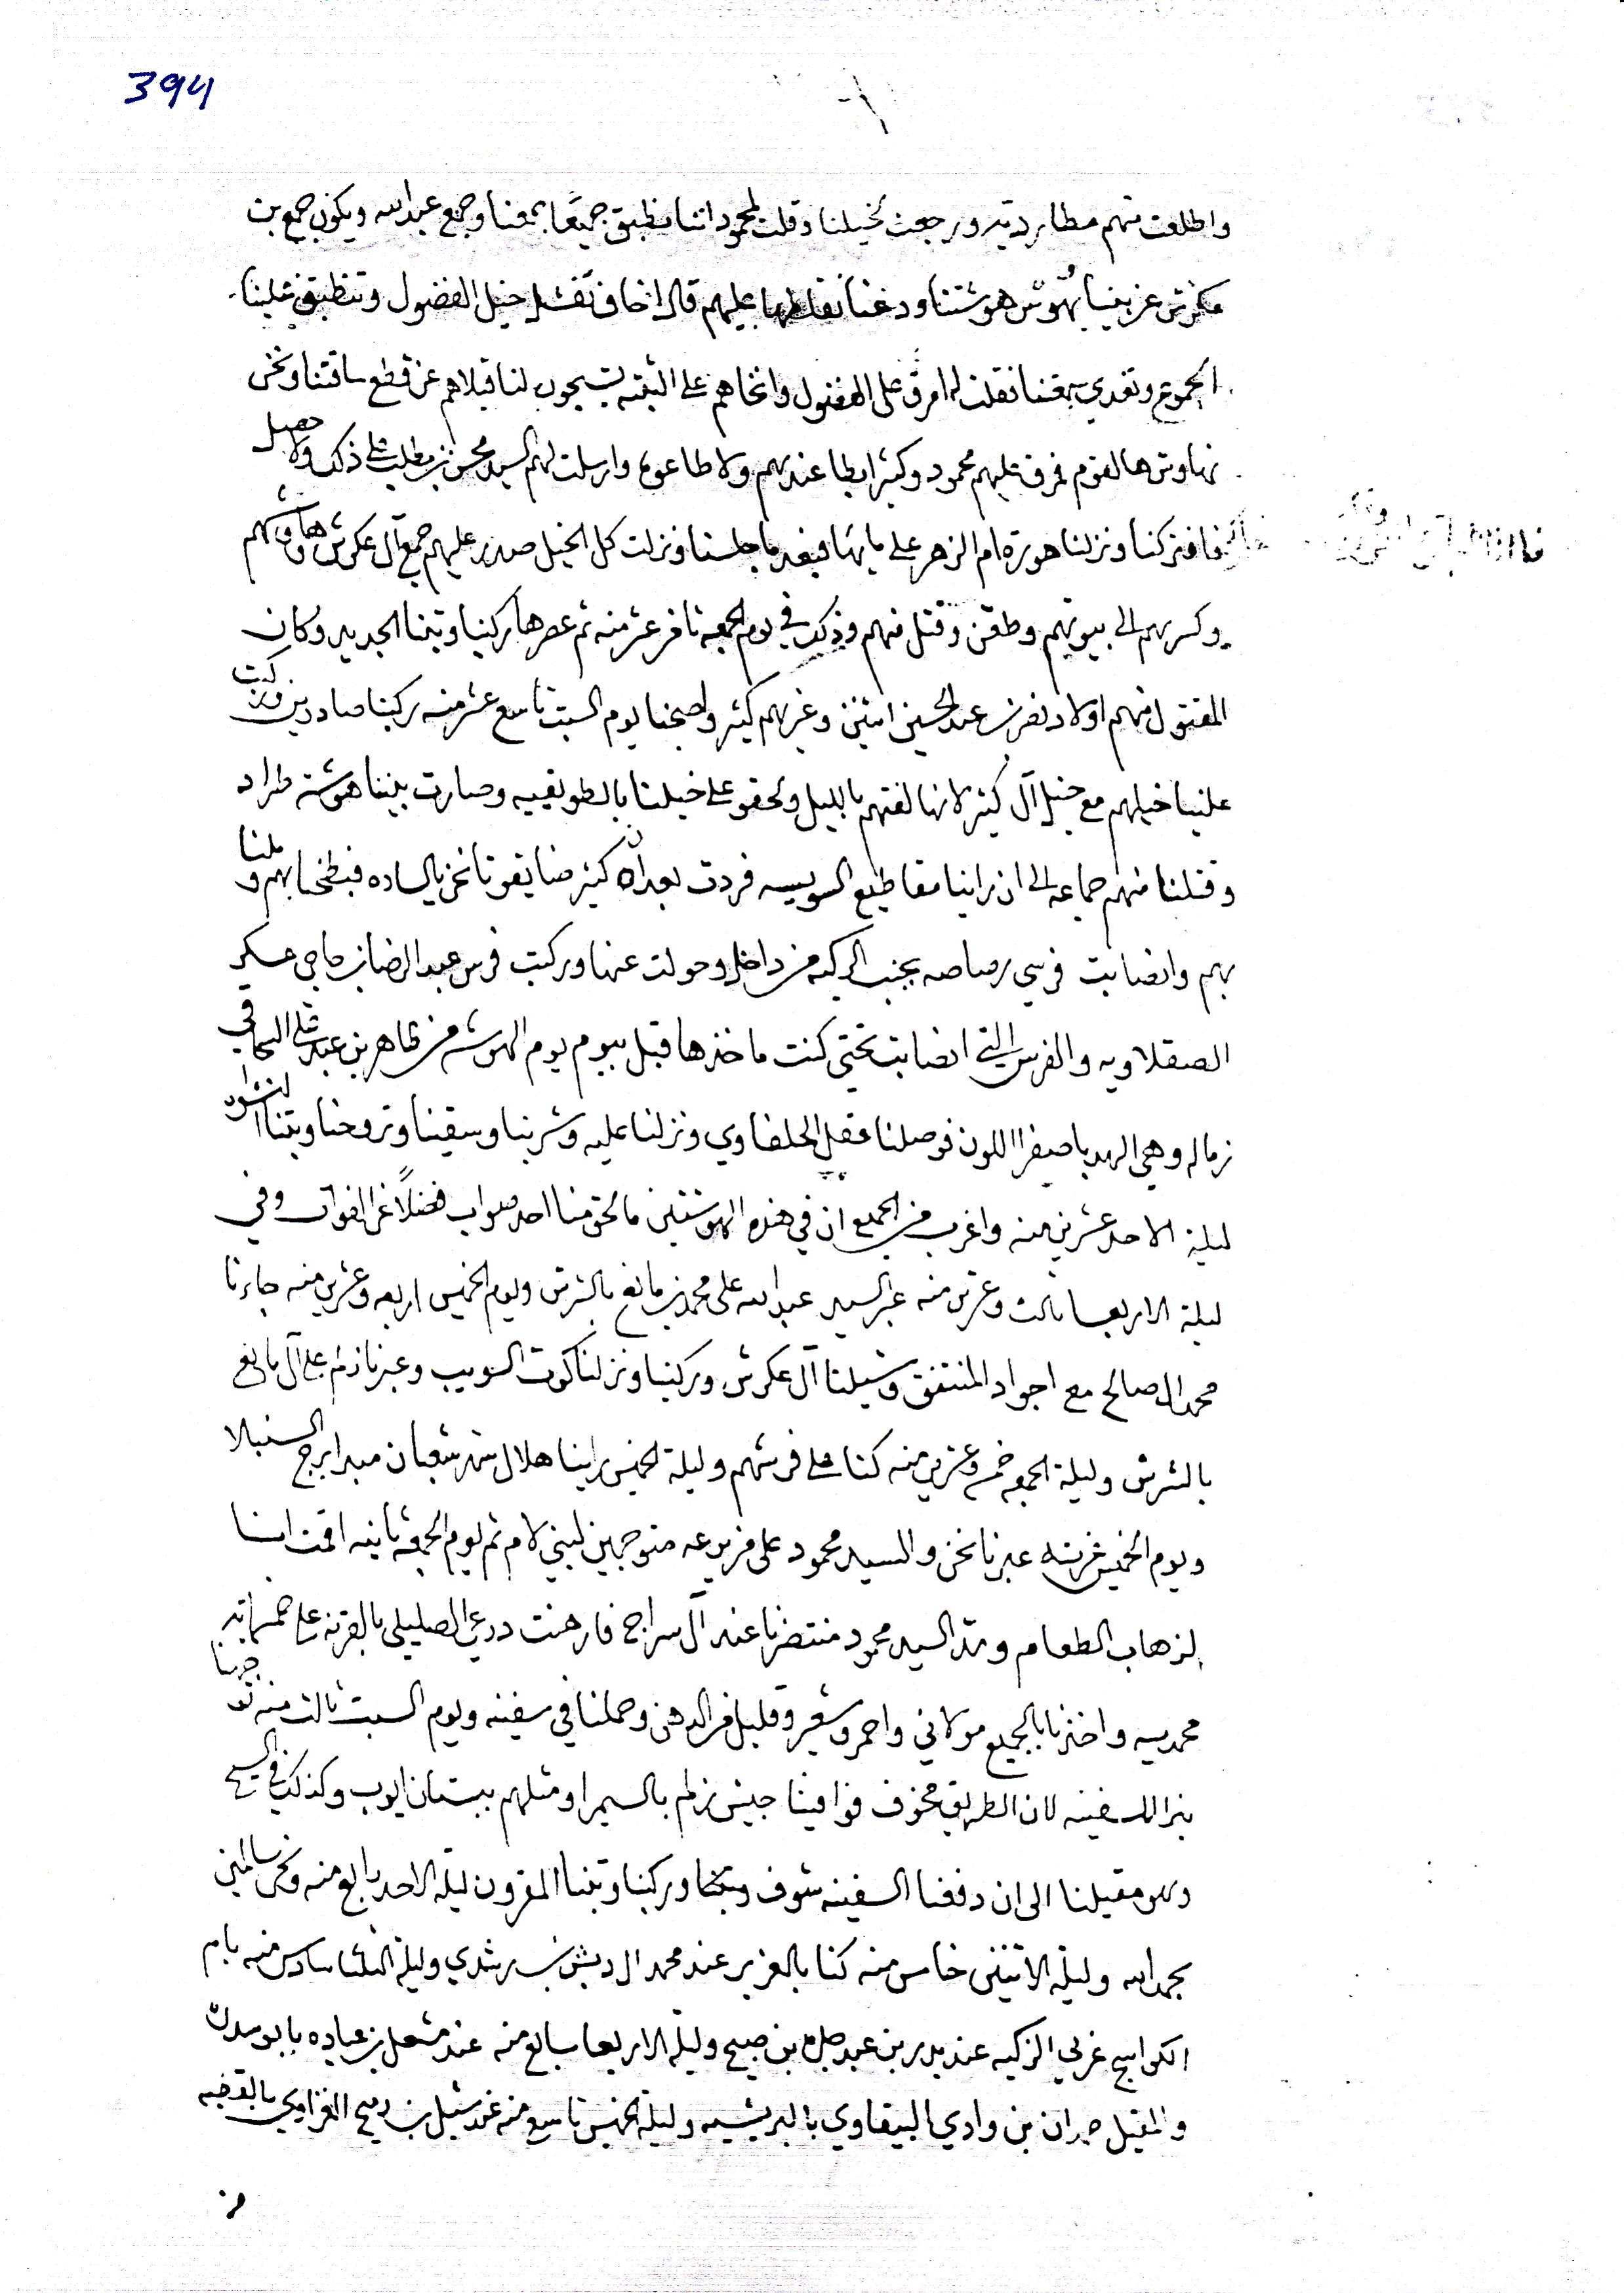 394
واطلعت منهم مطارديه ورجعت لخيلنا وقلت لمحمود اننا ننطبق جميعا بجمعنا وجمع عبدالله ويكون جمع بن
عكرش عن يميننا يهوش هوشتنا ودعنا عليهم قال اخاف تفشل خيل الفضول وتنطبق علينا
الجموع وتعدي بجمعنا فقلت له امرق على الفضول وانخاهم على الثبته لنا قبلاهم عن قطع ساقتنا ونحن
نهاوش هالقوم فمرق عليهم محمود وكثر ابطا عندهم ولا طاعوه وارسلت لهم السيد محسن بن مطلب على ذلك ولا حصل
فافتركنا ونزلنا هورة ام الزهر على مايها فبعد ما جلسنا ونزلت كل الخيل صدر عليهم جمع آل عكرش هاوشهم
وكسرهم الى بيوتهم وطقن وقتل منهم وذلك في يوم الجمعه ثامن عشر منه ثم عصرها ركبنا وبتنا الجديد وكان
المقتول منهم اولاد نصر بن عبد الحسين اثنين وغيرهم كثير واصبحنا يوم السبت تاسع عشر منه ركبنا صادرين
علينا خيلهم مع خيل آل كثير لانها لفتهم بالليل ولحقو على خيلنا بالطويقيه وصارت بيننا هوشة طراد
وقتلنا منهم جماعه الى ان راينا مقاطيع السويسه فردت بعد ان كثير ضايقونا نحن بالساده فبطحنا بهم و ملنا
بهم وانصابت فرسي رصاصه بجنب الركبه من داخل وحولت عنها وركبت فرس عبد الرضا بن حاجي عسكر
الصقلاويه والفرس التي انصابت تحتي كنت ماخذها قبل بيوم يوم الهوشه من ظاهر بن عبد علي
زماله وهي الهدبا صفرا اللون فوصلنا عقل الحلفاوي ونزلنا عليه وشربنا وسقينا وتروحنا وبتنا
ليلة الاحد عشرين منه واغرب من الجميع ان في هذه الهوشتين ما لحق منا احد صواب فضلاً عن الفوات وفي
ليلة الاربعا ثالث وعشرين منه عبر السيد عبد الله على محمد بن مانع بالشرش ويوم الخميس اربعه وعشرين منه جاءنا
محمد ال صالح مع اجواد المنتفق وشيلنا آل عكرش وركبنا ونزلنا كوت السويب وعبرنا زلم على آل مانع
بالشرش وليلة الجمعه خمس وعشرين منه كنا على فرشهم وليلة الخميس راينا هلال شهر شعبان مبدا برج السنبلا
ويوم الخميس غرته عبرنا نحن والسيد محمود على مزرعه متوجهين لبني لام ثم يوم الجمعه ثانيه اقمت انا
لزهاب الطعام ومد السيد محمود منتضرنا عند آل سراج فارهنت درعي الصليلي بالقرنه على
محمديه واخذنا بالجميع مولاني واحمر وشعير وقليل من الدهن وحملنا في سفينه ويوم السبت ثالث منه توجهنا
بنزال السفينه لان الطريق مخوف فوافينا جيش زلم بالسمرا ومثلهم ببستان ايوب وكذلك في
وهو مقيلنا الى ان دفعنا السفينه شوف وركبنا وبتنا المقرون ليلة الاحد رابع منه ونحن سالمين
بحمد الله وليلة الاثنين خامس منه كنا بالغرير عند محمد ال دبش بن رشدي وليلة الثلثا سادس منه بام
الكواسج غربي الزكيه عند بدر بن عبد بن صبيح وليلة الاربعا سابع منه عند مشعل بن عياده بابو سدره
والمقيل جبران بن وادي البيضاوي بالبريشيه وليلة الخميس تاسع منه عند شبل بن رميح الغزاوي
من